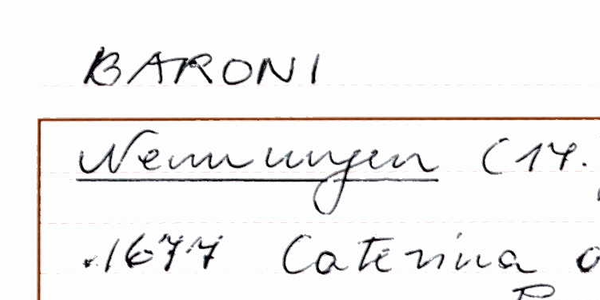 BARONI
Nennungen (17.
.1677 Caterina